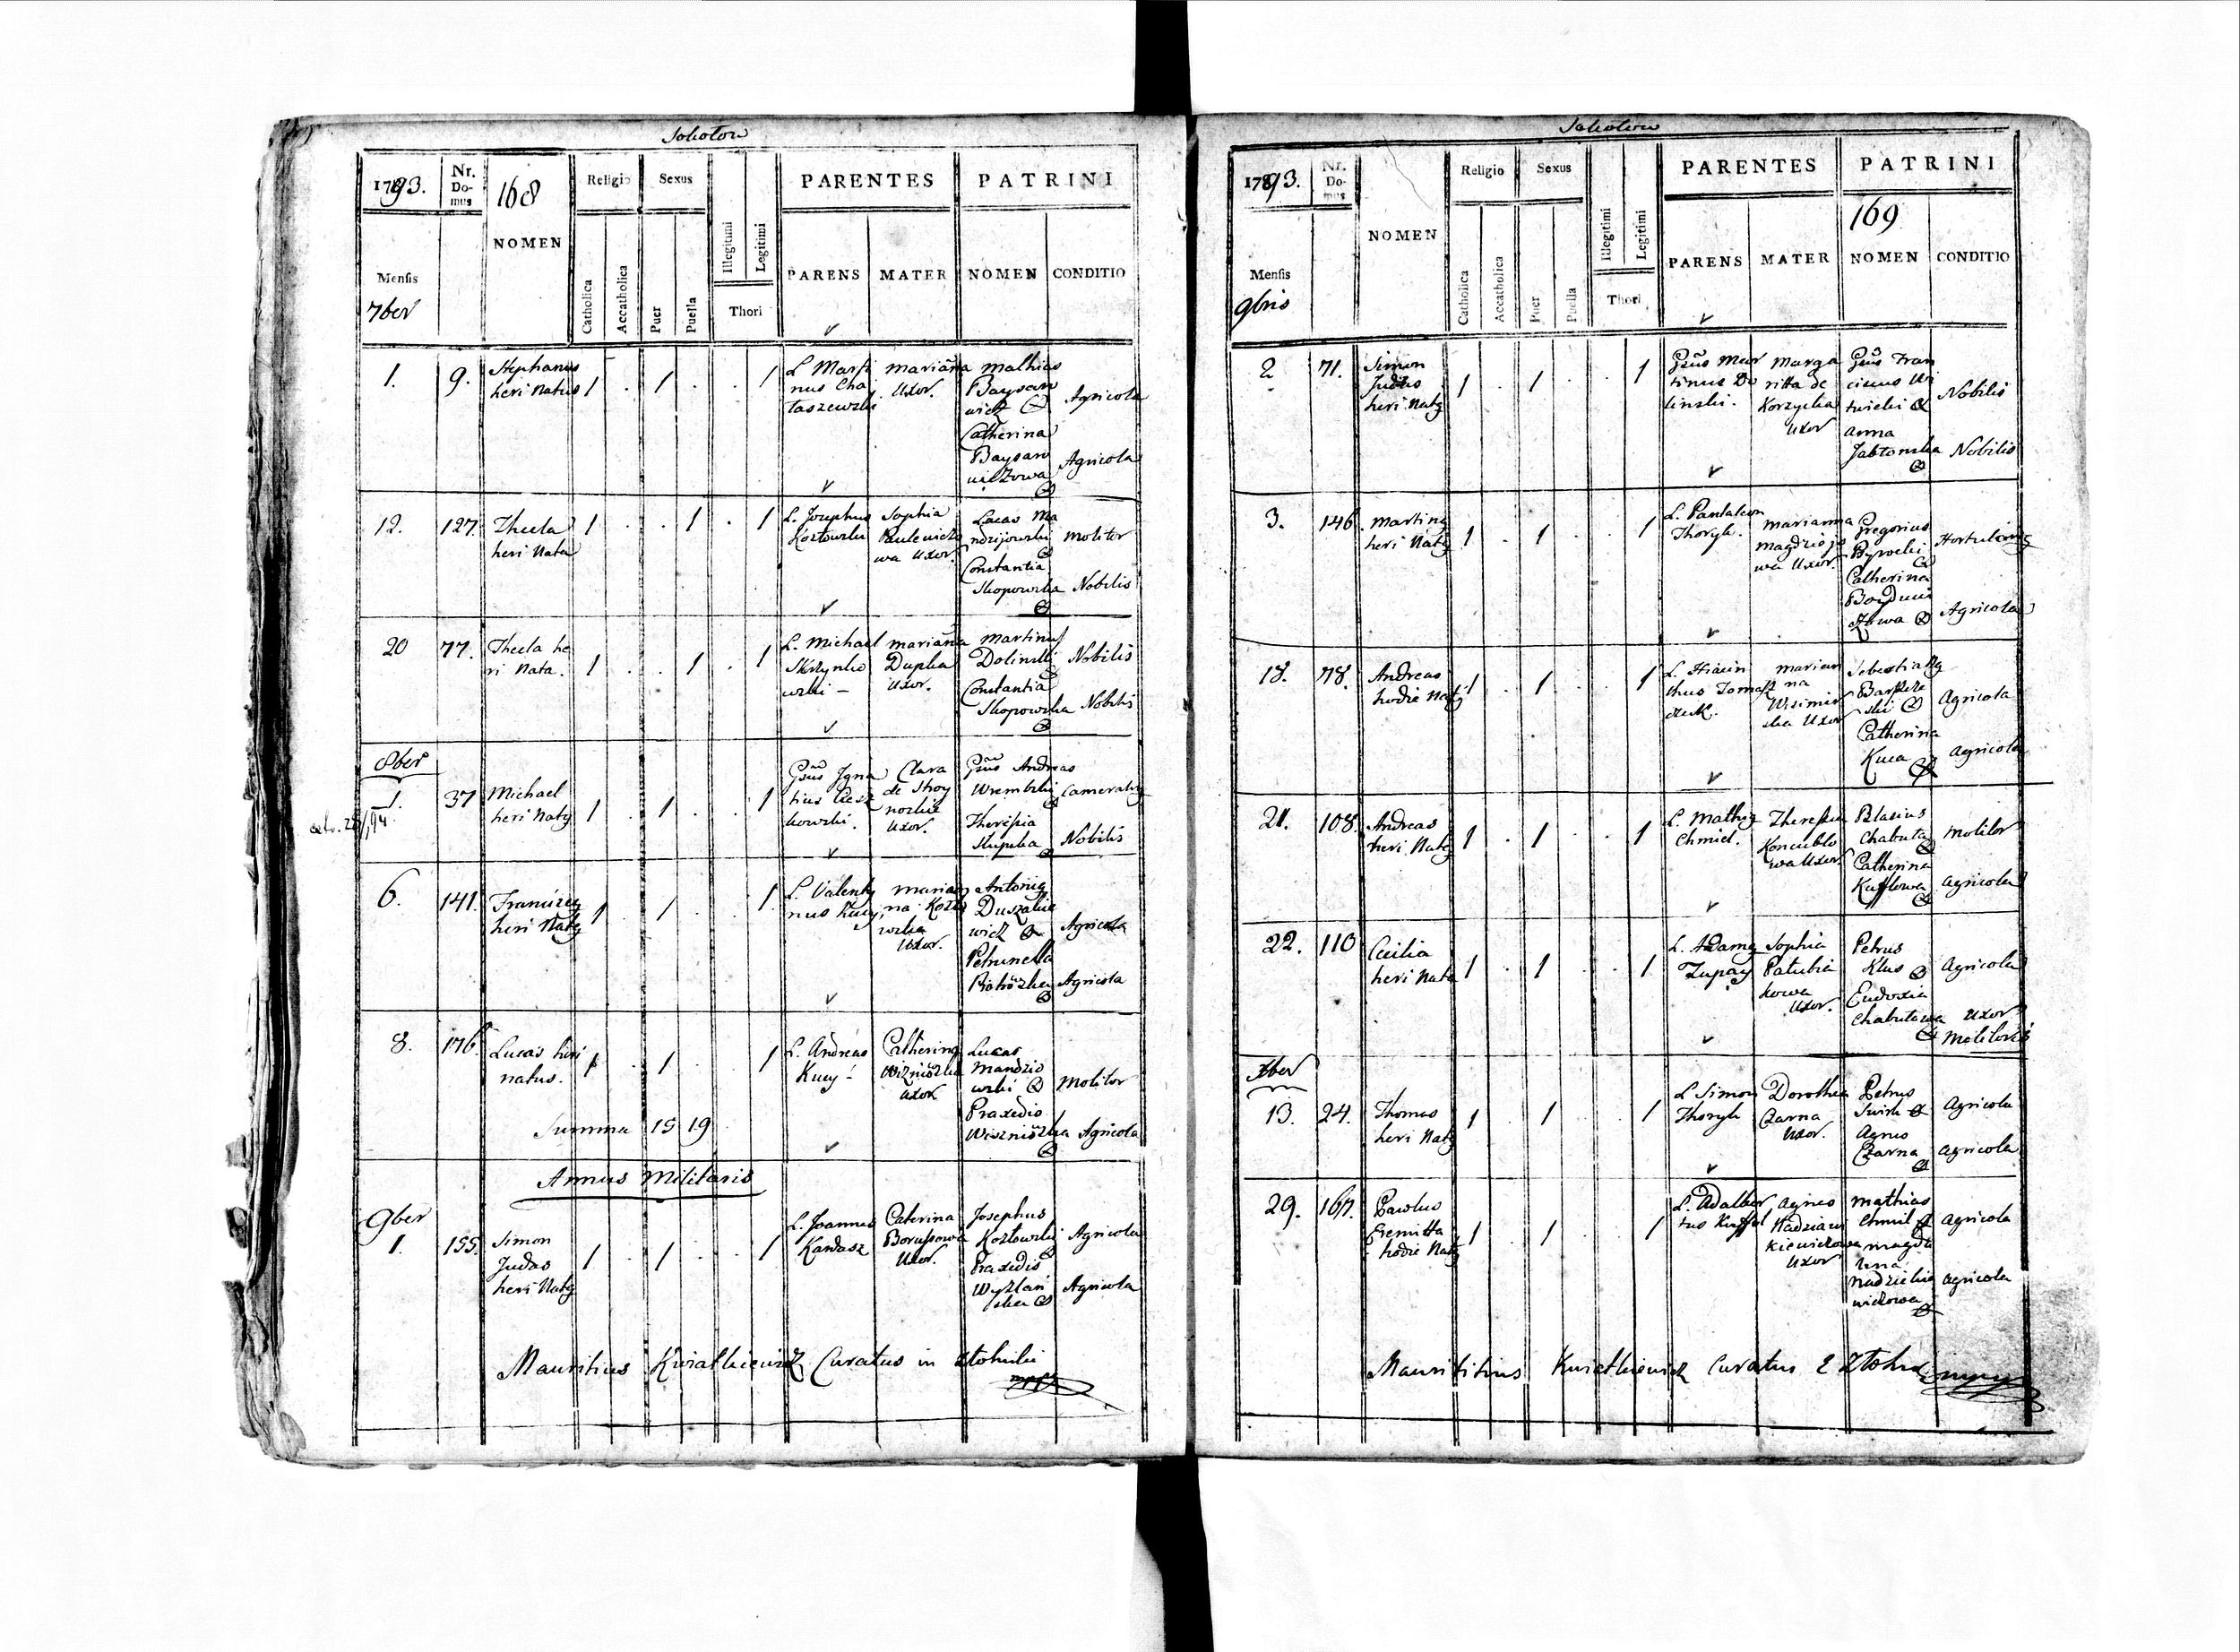 Sokołow
1793.
Nr. Do-mus
168
NOMEN
Religio
Sexus
PARENTES
PATRINI
Mensis
7ber
Catholica
Accatholica
Puer
Puella
Illegitimi
Legitimi
Thori
PARENS
MATER
NOMEN
CONDITIO
1. 9. Stephanus
heri Natus
1 . 1 . . 1
L. Marti
nus Cha
łaszewski
mariana
Uxor.
mathias
Baysaro
wicz
Catherina
Baysaro
wiczowa
Agricola
Agricola
12. 127. Thecla
heri Nata
1 . . 1 . 1
L. Josephus
Kozłowski
Sophia
Paulewiczo
wa Uxor.
Lucas Ma
ndzijowski
Constantia
Skopowska
molitor
Nobilis
20 77. Thecla he
ri Nata.
1 . . 1 . 1
L. Michael
Skrzynko
wski
mariana
Dupka
Uxor.
Martinus
Dolinski
Constantia
Skopowska
Nobilis
Nobilis
8ber
1. 37 Michael
heri Natg
1 . 1 . . 1
Gsus Igna
tius
kowski.
Clara
de
Uxor.
Gsus Andreas
Wrembski
Theresia
Slupska
Cameralis
Nobilis
6. 141. Franciscg
heri Natg
1 . 1 . . 1
L. Valenty
nus Kucy,
marian
na Kozło
wska
Uxor.
Antonig
Duszakie
wicz
Petrunella
Agricola
Agricola
8. 176. Lucas heri
natus.
1 . 1 . . 1
L. Andreas
Kucy
Catherina
Uxor
Lucas
Mandzio
wski
Praxedis
Wiszniowska
Molitor
Agricola
Summa 15 19
Annus Militaris
9ber
1. 155. Simon
Judas
heri Natg
1 . 1 . . 1
L. Joannes
Kardasz
Caterina
Borussowa
Uxor.
Josephus
Kozłowski
Praxedis
Wyżlań
ska
Agricola
Agricola
Mauritius Kwiatkiewicz Curatus in
mpp
Sokołow
1793.
Nr. Do-mus
NOMEN
Religio
Sexus
PARENTES
PATRINI
169
Mensis
9bris
Catholica
Accatholica
Puer
Puella
Illegitimi
Legitimi
Thori
PARENS
MATER
NOMEN
CONDITIO
2 71. Simon
Judas
heri Natg
1 . 1 . . 1
Gsus Mar
tinus Do
linski.
Marga
ritta de
Korzycka
Uxor
Gsus Fran
ciscus Wi
twicki
Anna
Jabłonska
Nobilis
Nobilis
3. 146. Marting
heri Natg
1 . 1 . . 1
L. Pantaleon
Thoryk.
Marianna
Magdziejo
wa Uxor.
Gregorius
Catherina
Hortulanus
Agricola
18. 78. Andreas
hodie Natg
1 . 1 . . 1
L. Hiacin
thus Tomasz
czuk.
marian
na
Uxor
Sebastiang
Catherina
Kuca
Agricola
Agricola
21. 108. Andreas
heri Natg
1 . 1 . . 1
L. Mathig
Chmiel.
Theresia
Koncublo
wa Uxor.
Blasius
Chabuta
Catherina
Kufflowa
Molitor
Agricola
22. 110 Cecilia
heri Nata
1 . 1 . . 1
L. Adamg
Zupay
Sophia
Patubia
kowa
Uxor.
Petrus
Klus
Eudoxia
Chabutowa
Agricola
Uxor
Molitoris
Xber
13. 24. Thomas
heri Natg
1 . 1 . . 1
L Simon
Thoryk
Dorothea
Czarna
Uxor.
Petrus
Agnes
Czarna
Agricola
Agricola
29. 167. Paulus
Eremitta
hodie Natg
1 . 1 . . 1
L. Adalber
tus Kuffel
Agnes
Nadziaw
kiewiczowa
Uxor
Mathias
Chmil
magda
lena
Nadzielkie
wiczowa
Agricola
Agricola
Kwiatkiewicz Curatus